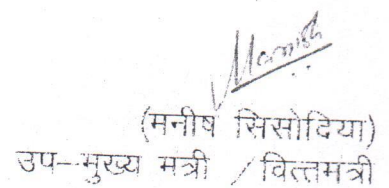 Manish
(मनीष सिसोदिया)
उप-मुख्य मंत्री / वित्तमंत्री